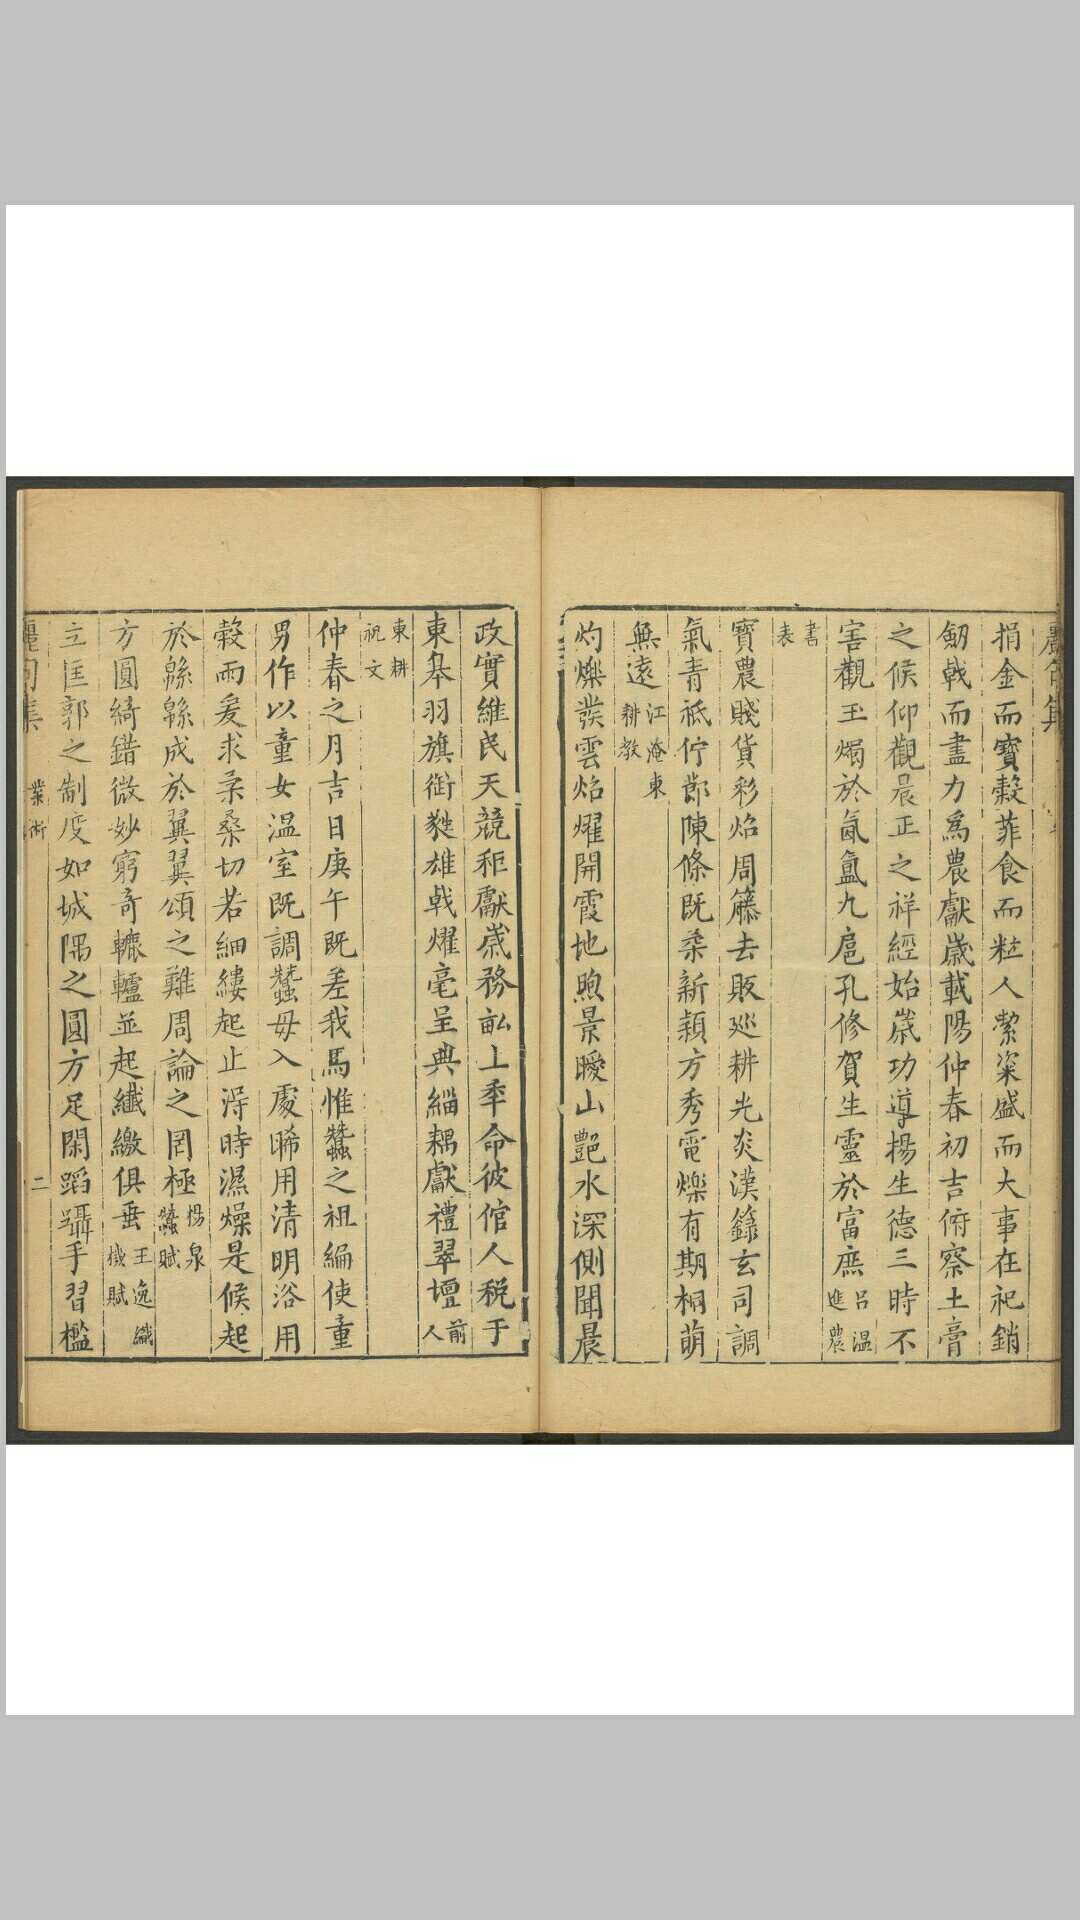 麗句集
捐金而寶穀菲食而粒人潔粢盛而大事在祀銷
劒戟而盡力爲農獻歲載陽仲春初吉俯察土膏
之候仰觀晨正之祥經始歲功導揚生德三時不
害觀玉燭於氤氳九扈孔修賀生靈於富庶呂温進農
書表
寶農賤貨彩焰周籐去販巡耕光炎漢籙玄司調
氣青祗佇節陳條既柔新穎方秀電爍有期桐萌
無遠江淹東耕教
灼爍發雲焰燿開霞地煦景曖山艷水深側聞晨
政實維民天競秬獻歲務畝上秊命彼倌人稅于
東皋羽旗銜蕤雄戟燿毫呈典緇耦獻禮翠壇前人
東耕祝文
仲春之月吉日庚午既差我馬惟蠶之祖編使童
男作以童女温室既調蠶母入處晞用清明浴用
穀雨爰求柔桑切若細縷起止淂時濕燥是候起
於緜緜成於翼翼頌之難周論之罔極楊泉蠶賦
方圓綺錯微妙窮奇轆轤並起纖繳俱垂王逸織機賦
立匡郭之制度如城隅之圓方足閑蹈躡手習檻
麗句集 業術 二